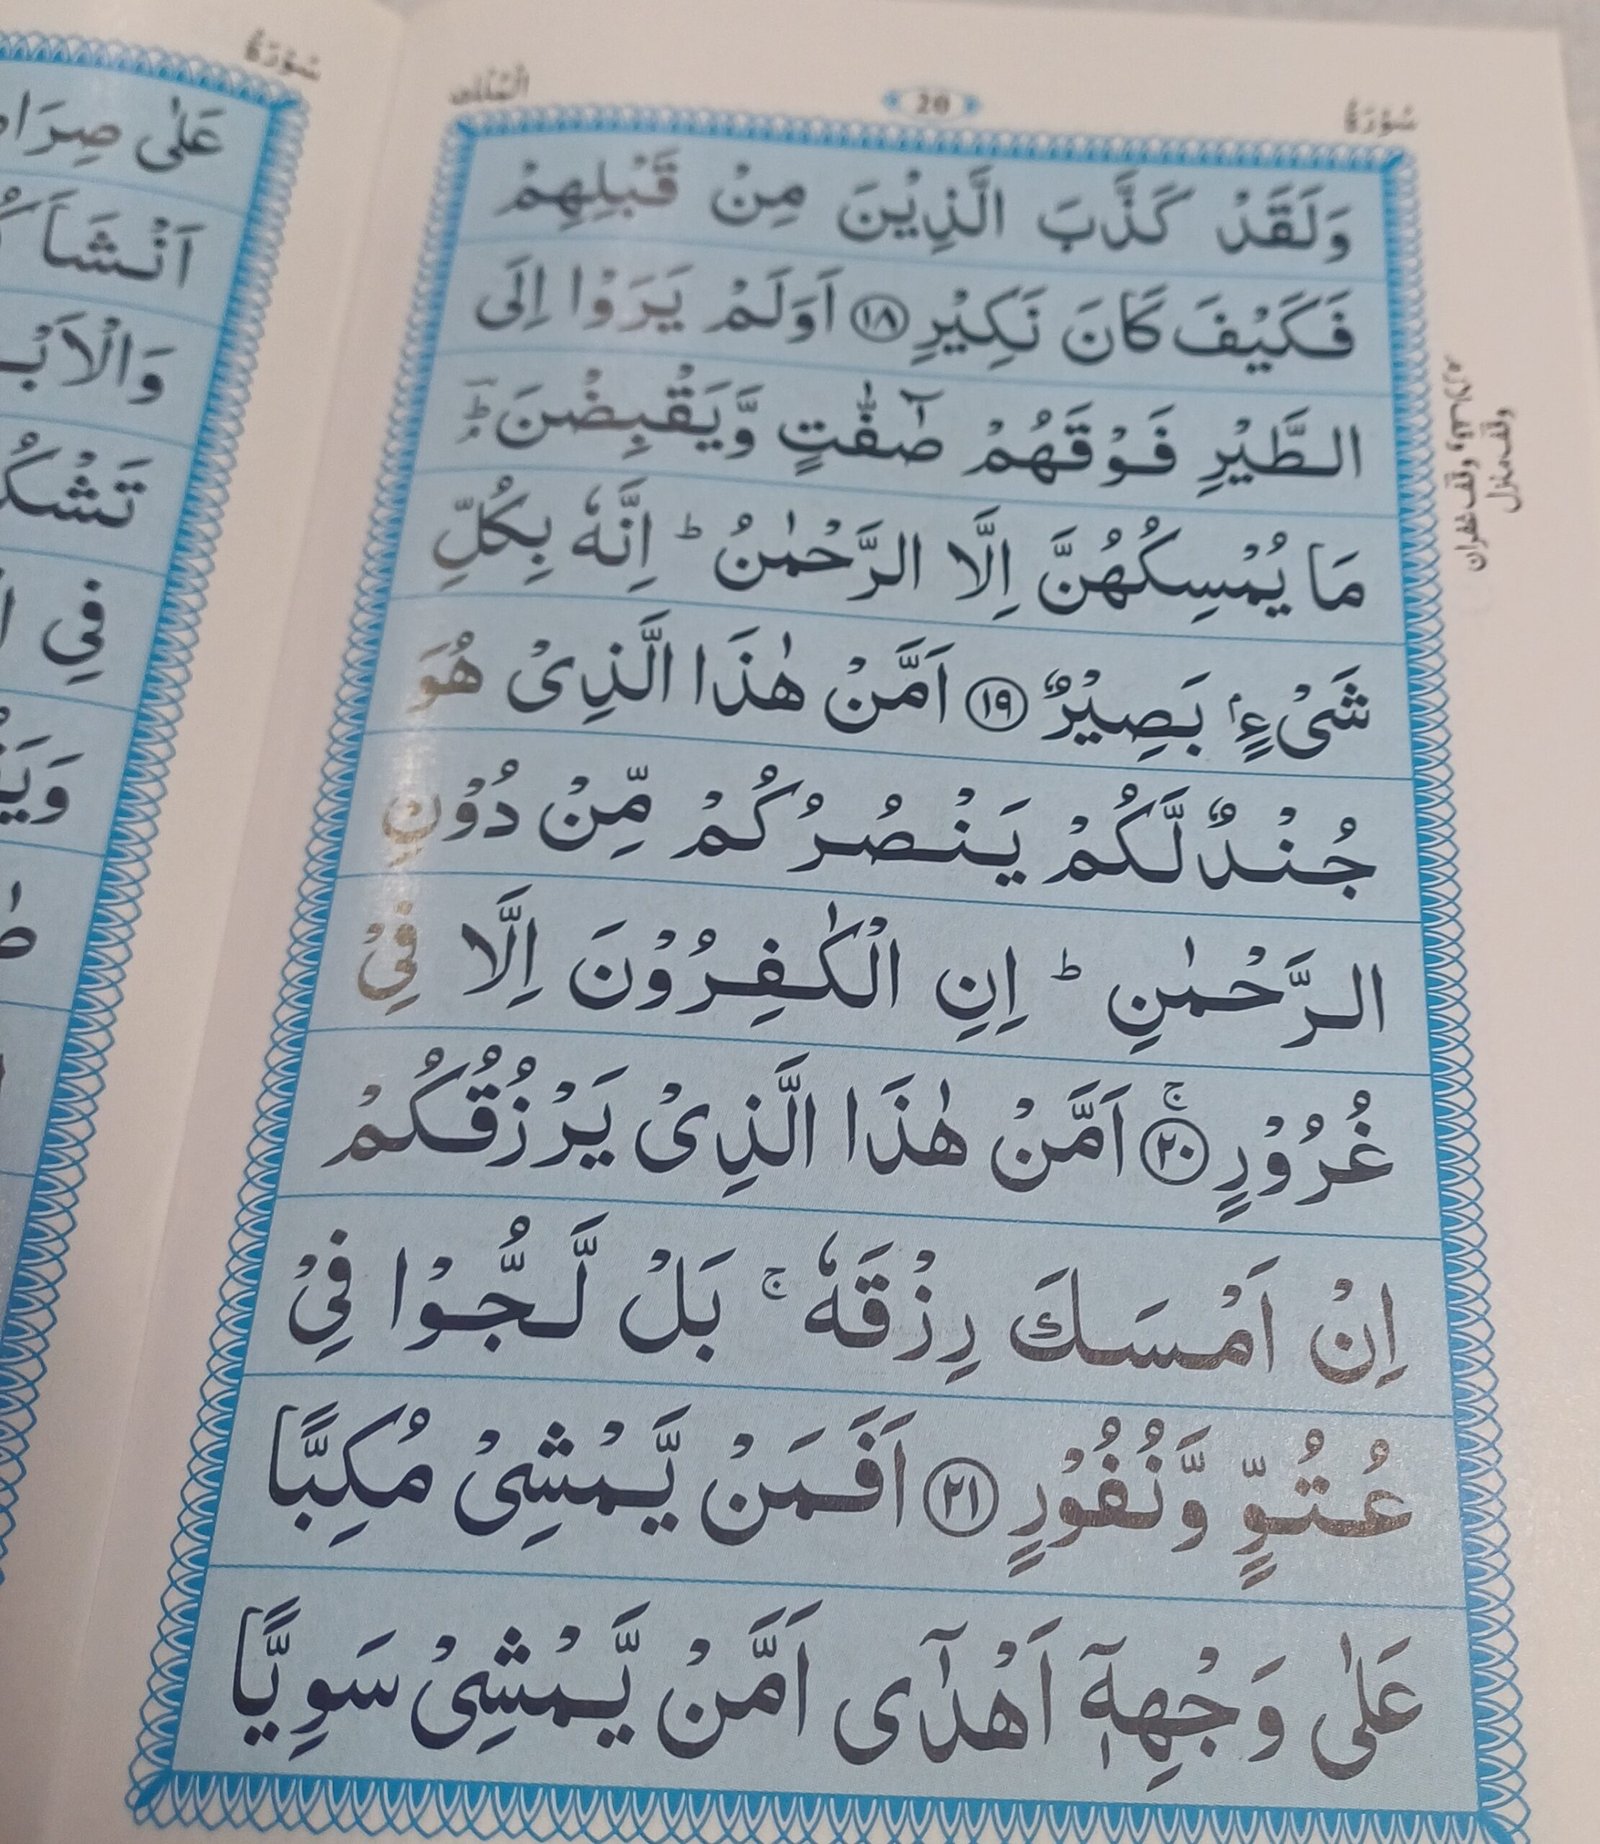 سُوْرَةُ
20
الْمُلْك
وَلَقَدْ كَذَّبَ الَّذِيْنَ مِنْ قَبْلِهِمْ
فَكَيْفَ كَانَ نَكِيْرِ ۝۱۸ اَوَلَمْ يَرَوْا اِلَى
الطَّيْرِ فَوْقَهُمْ صٰٓفّٰتٍ وَّيَقْبِضْنَ ؕۘ
مَا يُمْسِكُهُنَّ اِلَّا الرَّحْمٰنُ ؕ اِنَّهٗ بِكُلِّ
شَیْءٍۭ بَصِيْرٌ ۝۱۹ اَمَّنْ هٰذَا الَّذِیْ هُوَ
جُنْدٌ لَّكُمْ يَنْصُرُكُمْ مِّنْ دُوْنِ
الرَّحْمٰنِ ؕ اِنِ الْكٰفِرُوْنَ اِلَّا فِیْ
غُرُوْرٍ ۝۲۰ۚ اَمَّنْ هٰذَا الَّذِیْ يَرْزُقُكُمْ
اِنْ اَمْسَكَ رِزْقَهٗ ۚ بَلْ لَّجُّوْا فِیْ
عُتُوٍّ وَّنُفُوْرٍ ۝۲۱ اَفَمَنْ يَّمْشِیْ مُكِبًّا
عَلٰى وَجْهِهٖۤ اَهْدٰۤى اَمَّنْ يَّمْشِیْ سَوِيًّا
وقف غفران
وقف منزل
سُوْرَةُ
عَلٰى
اَنْشَاَ
فِی